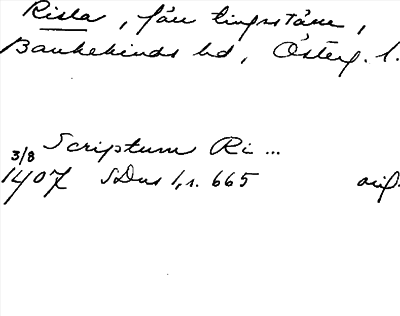 Risla, fður tingsställe,
Bankekinds hd, Österg. l.
Scriptum Ri ...
3/8
1407 SDns 1, s. 665 orig.